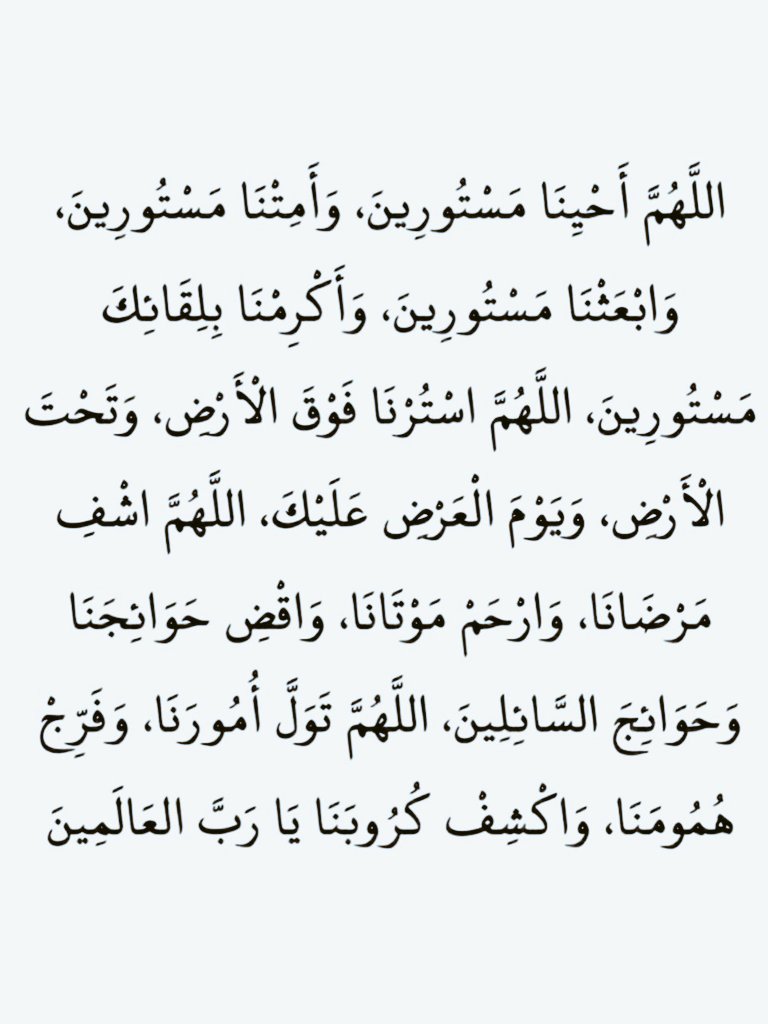 اللَّهُمَّ أَحْيِنَا مَسْتُورِينَ، وَأَمِتْنَا مَسْتُورِينَ،
وَابْعَثْنَا مَسْتُورِينَ، وَأَكْرِمْنَا بِلِقَائِكَ
مَسْتُورِينَ، اللَّهُمَّ اسْتُرْنَا فَوْقَ الْأَرْضِ، وَتَحْتَ
الْأَرْضِ، وَيَوْمَ الْعَرْضِ عَلَيْكَ، اللَّهُمَّ اشْفِ
مَرْضَانَا، وَارْحَمْ مَوْتَانَا، وَاقْضِ حَوَائِجَنَا
وَحَوَائِجَ السَّائِلِينَ، اللَّهُمَّ تَوَلَّ أُمُورَنَا، وَفَرِّجْ
هُمُومَنَا، وَاكْشِفْ كُرُوبَنَا يَا رَبَّ العَالَمِينَ